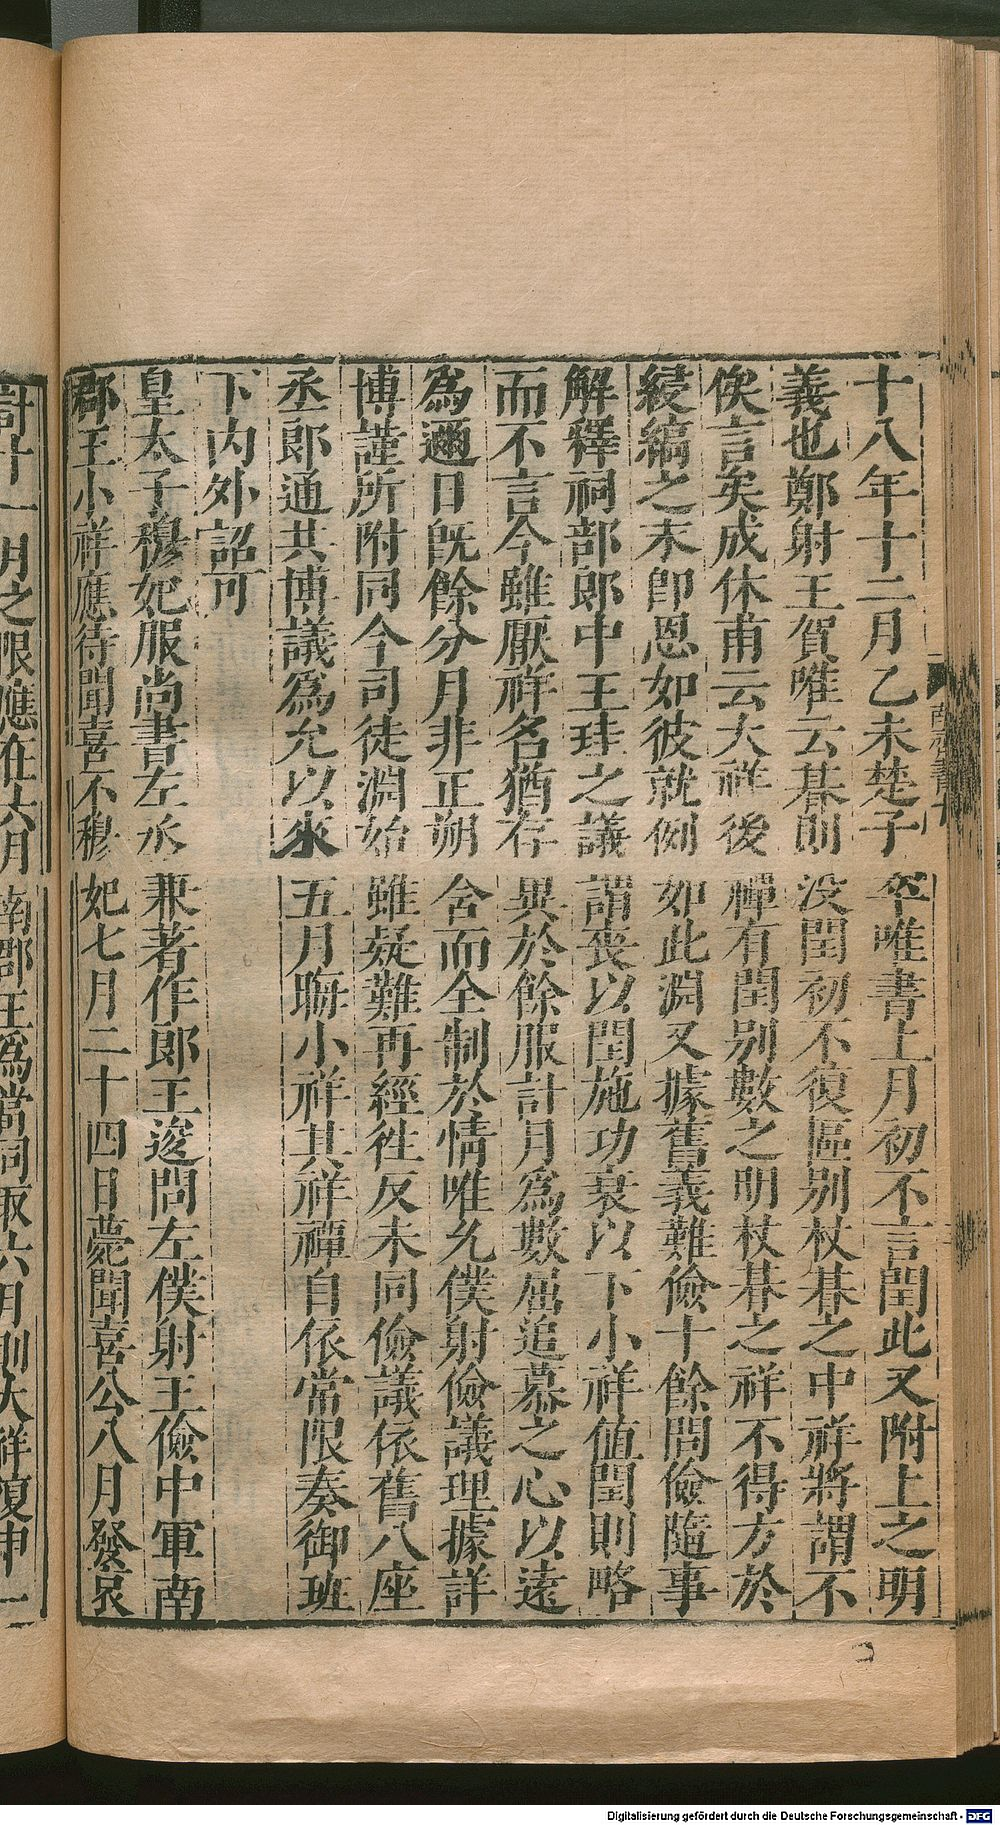 十八年十二月乙未楚子卒唯書上月初不言閏此又附上之明
義也鄭射王賀唯云朞則没閏初不復區别杖朞之中祥將謂不
俟言矣成休甫云大祥後禫有閏别數之明杖朞之祥不得方於
綅縞之末即恩如彼就例如此淵又據舊義難儉十餘問儉隨事
解釋祠部郎中王珪之議謂喪以閏施功衰以下小祥值閏則略
而不言今雖厭祥名猶存異於餘服計月為數屈追慕之心以遠
為邇日既餘分月非正朔含而全制於情唯允僕射儉議理據詳
博謹所附同今司徒淵始雖疑難再經徃反未同儉議依舊八座
丞郎通共博議為允以來五月晦小祥其祥禫自依常限奏御班
下内外詔可
皇太子穆妃服尚書左丞兼著作郎王逡問左僕射王儉中軍南
郡王小祥應待聞喜不穆妃七月二十四日薨聞喜公八月發哀
計十一月之限應在六月南郡王為當同取六月則大祥復申一
Digitalisierung gefördert durch die Deutsche Forschungsgemeinschaft - DFG